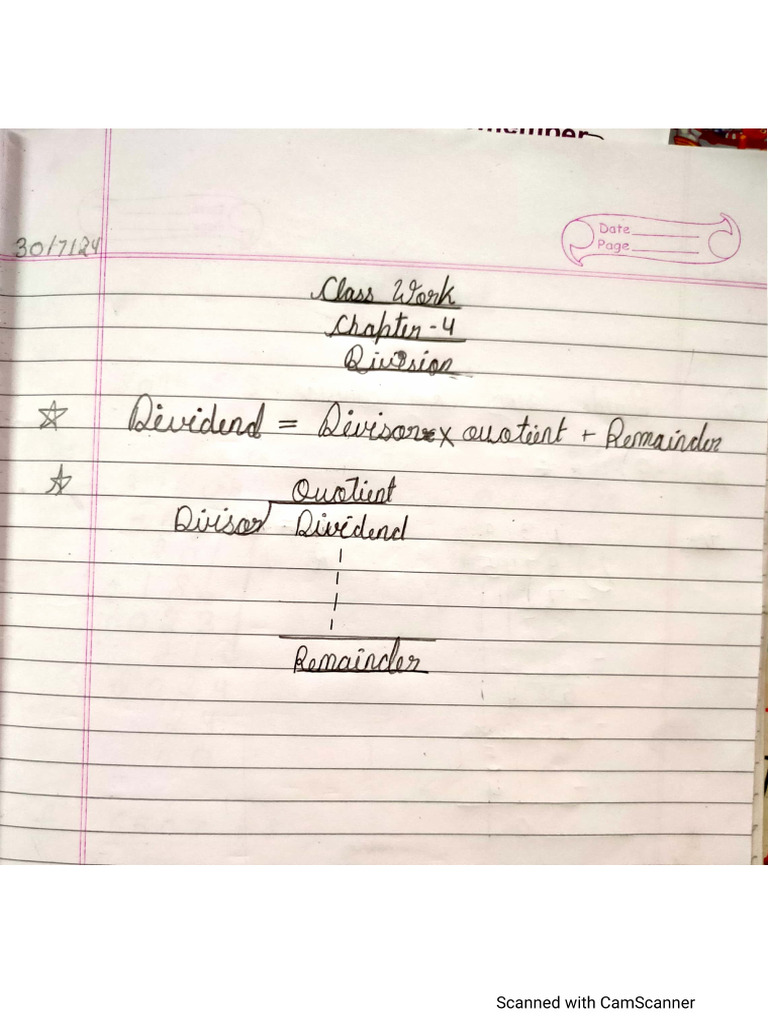 30/7/24
Date
Page
Class Work
Chapter - 4
Division
Dividend = Divisor x Quotient + Remainder
Quotient
Divisor Dividend
Remainder
Scanned with CamScanner